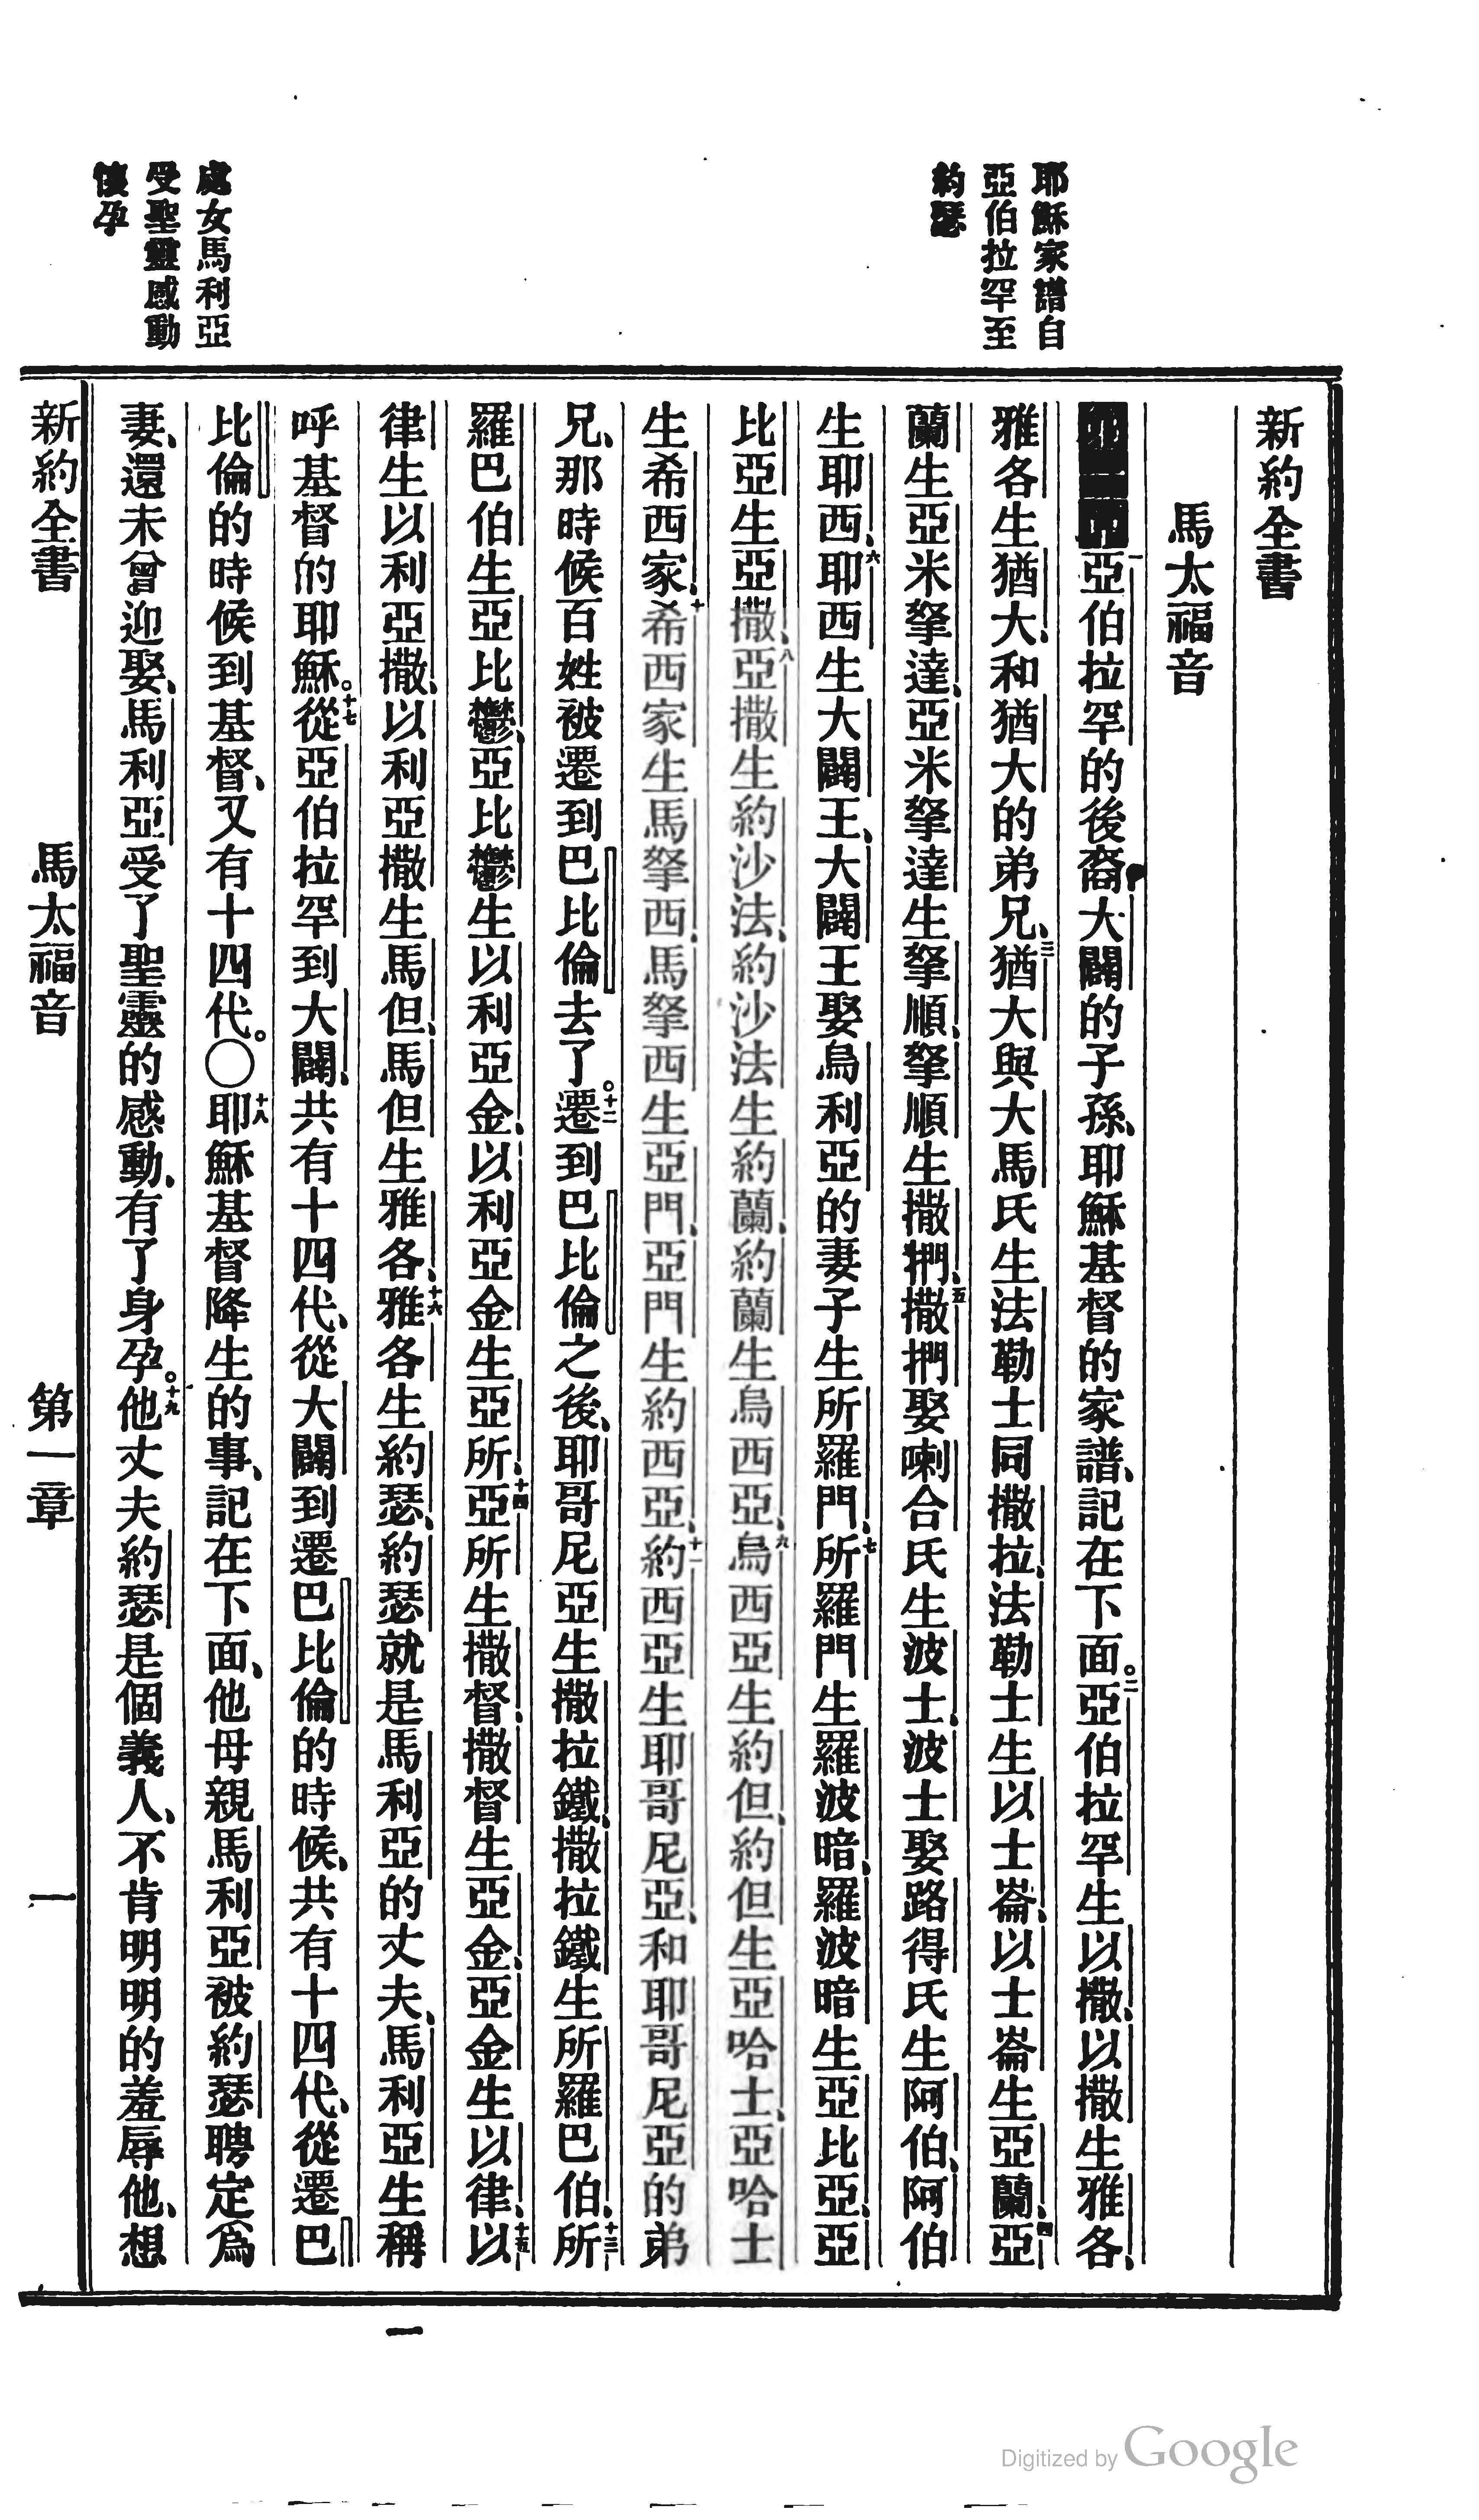 耶穌家譜自
亞伯拉罕至
約瑟
處女馬利亞
受聖靈感動
懷孕
新約全書
馬太福音
一亞伯拉罕的後裔、大闢的子孫、耶穌基督的家譜、記在下面。二亞伯拉罕生以撒、以撒生雅各、
雅各生猶大、和猶大的弟兄、三猶大與大馬氏生法勒士同撒拉、法勒士生以士崙、以士崙生亞蘭、四亞
蘭生亞米拏達、亞米拏達生拏順、拏順生撒捫、五撒捫娶喇合氏生波士、波士娶路得氏生阿伯、阿伯
生耶西、六耶西生大闢王、大闢王娶烏利亞的妻子生所羅門、七所羅門生羅波暗、羅波暗生亞比亞、亞
比亞生亞撒、八亞撒生約沙法、約沙法生約蘭、約蘭生烏西亞、九烏西亞生約但、約但生亞哈士、亞哈士
生希西家、十希西家生馬拏西、馬拏西生亞門、亞門生約西亞、十一約西亞生耶哥尼亞、和耶哥尼亞的弟
兄、那時候百姓被遷到巴比倫去了。十二遷到巴比倫之後、耶哥尼亞生撒拉鐵、撒拉鐵生所羅巴伯、十三所
羅巴伯生亞比鬱、亞比鬱生以利亞金、以利亞金生亞所、十四亞所生撒督、撒督生亞金、亞金生以律、十五以
律生以利亞撒、以利亞撒生馬但、馬但生雅各、十六雅各生約瑟、約瑟就是馬利亞的丈夫、馬利亞生稱
呼基督的耶穌。十七從亞伯拉罕到大闢、共有十四代、從大闢到遷巴比倫的時候、共有十四代、從遷巴
比倫的時候到基督、又有十四代。〇十八耶穌基督降生的事、記在下面、他母親馬利亞被約瑟聘定爲
妻、還未曾迎娶、馬利亞受了聖靈的感動、有了身孕。十九他丈夫約瑟是個義人、不肯明明的羞辱他、想
新約全書 馬太福音 第一章 一
一
Digitized by Google